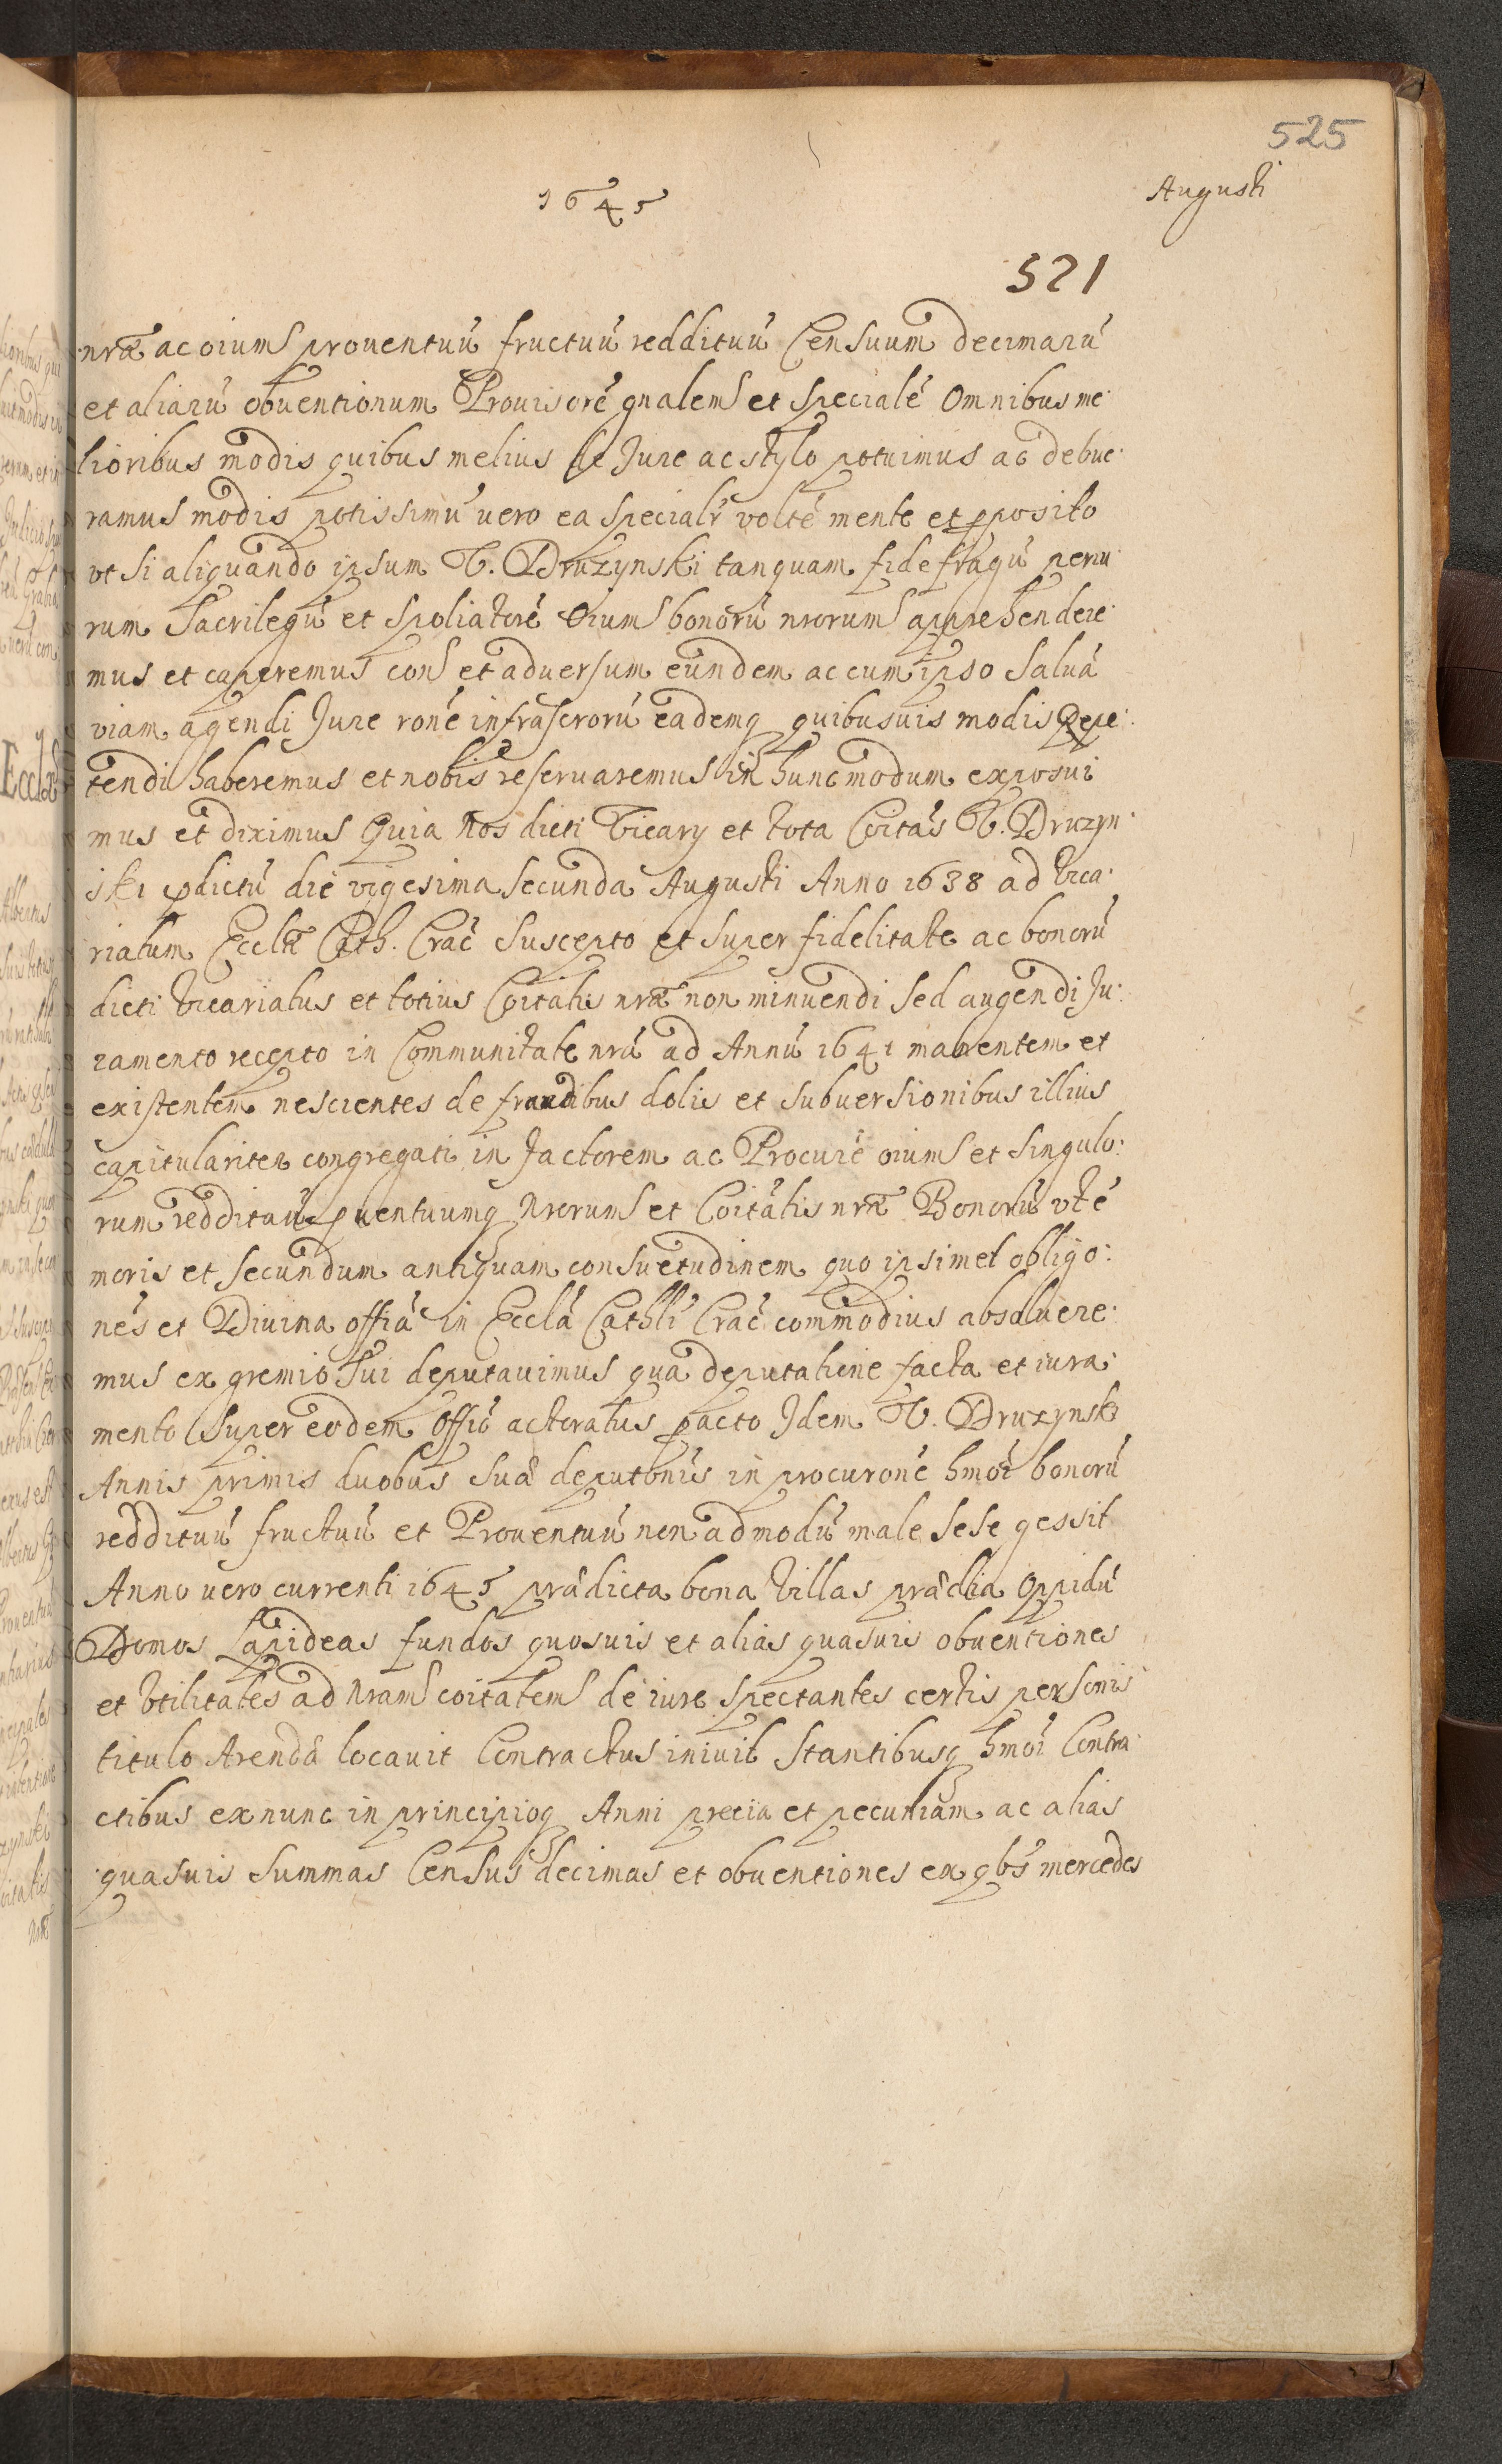 525
Augusti
1645
521
nrã ac oium prouentuú fructuú reddituú Censuum decimarú
et aliarú obuentionum Prouisoré gnalem et Specialé Omnibus me:
lioribus modis quibus melius de Jure ac stylo potuimus ac debue:
ramus modis potissimú uero ea specialr volté mente et pposito
vt si aliquando ipsum V. Druzynski tanquam fidefragú periu:
rum Sacrilegú et Spoliatoré Oium bonorú nrorum apprehendere:
mus et caperemus con et aduersum eundem ac cum ipso Saluá
viam agendi Jure roné infrascrorú eademq quibusuis modis Repe:
tendi haberemus et nobis reseruaremus in hunc modum exposui
mus et diximus Quia Nos dicti Vicary et tota Coitás V. Druzyn:
ski pdictú dié vigesima Secunda Augusti Anno 1638 ad Vica:
riatum Ecclæ Cath. Crac Suscepto et super fidelitate ac bonorú
dicti Vicariatus et totius Coitatis nræ non minuendi sed augendi Ju:
ramento recepto in Communitate nrá ad Annú 1641 manentem et
existentem nescientes de fraudibus dolis et subuersionibus illius
capitulariter congregati in factorem ac Procuré oium et Singulo:
rum reddituú puentuumq Nrorum et Coitátis nræ Bonorú vt é
moris et secundum antiquam consuetudinem quo ipsimet obligo:
nés et Diuina offia in Ecclá Cathlí Crac commodius absoluere:
mus ex gremio Sui deputauimus quá deputatione facta et iura:
mento Super eodem offió actoratus pacto Idem V. Druzynski
Annis primis duobus Suá deputonis in procuroné hmói bonorú
reddituú fructuú et Prouentuú non admodú male sese gessit
Anno uero currenti 1645 prædicta bona Villas prædia Oppidú
Domos Lapideas fundos quosuis et alias quasuis obuentiones
et Vtilitates ad Nram coitatem de iure spectantes certis personis
titulo Arendæ locauit Contractus iniuit Stantibusq hmói Contra:
ctibus ex nunc in principioq Anni precia et pecuniam ac alias
quasuis Summas Census decimas et obuentiones ex qbs mercedes